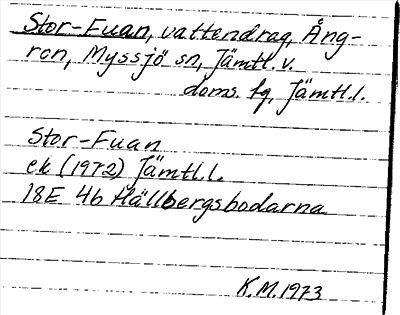 Stor-Fuan, vattendrag, Ång-
ron, Myssjö sn, Jämtl. v.
doms. fg, Jämtl.l.
Stor-Fuan
ek (1972) Jämtl.l.
18E 4b Hällbergsbodarna
K.M. 1973